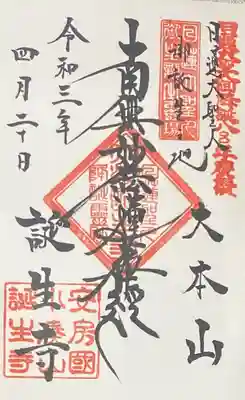 日蓮大聖人
御誕生地
大本山
南無妙法蓮華経
令和三年
四月二十日
誕生寺
安房國
小湊山
誕生寺